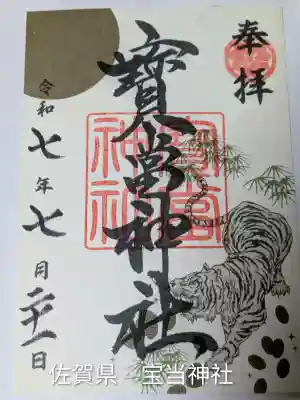 奉拝
寳當神社
寳當神社
令和七年七月二十一日
佐賀県 宝当神社